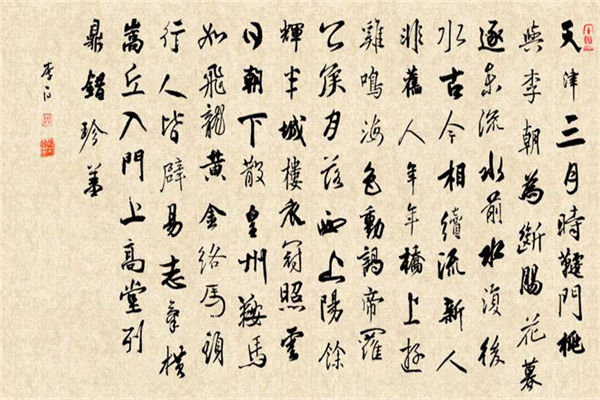 天津三月時韆門桃
與李朝為斷腸花暮
逐東流水前水復後
水古今相續流新人
非舊人年年橋上遊
雞鳴海色動謁帝羅
公侯月落西上陽餘
輝半城樓衣冠照雲
日朝下散皇州鞍馬
如飛龍黃金絡馬頭
行人皆辟易志氣橫
嵩丘入門上高堂列
鼎錯珍羞
李白